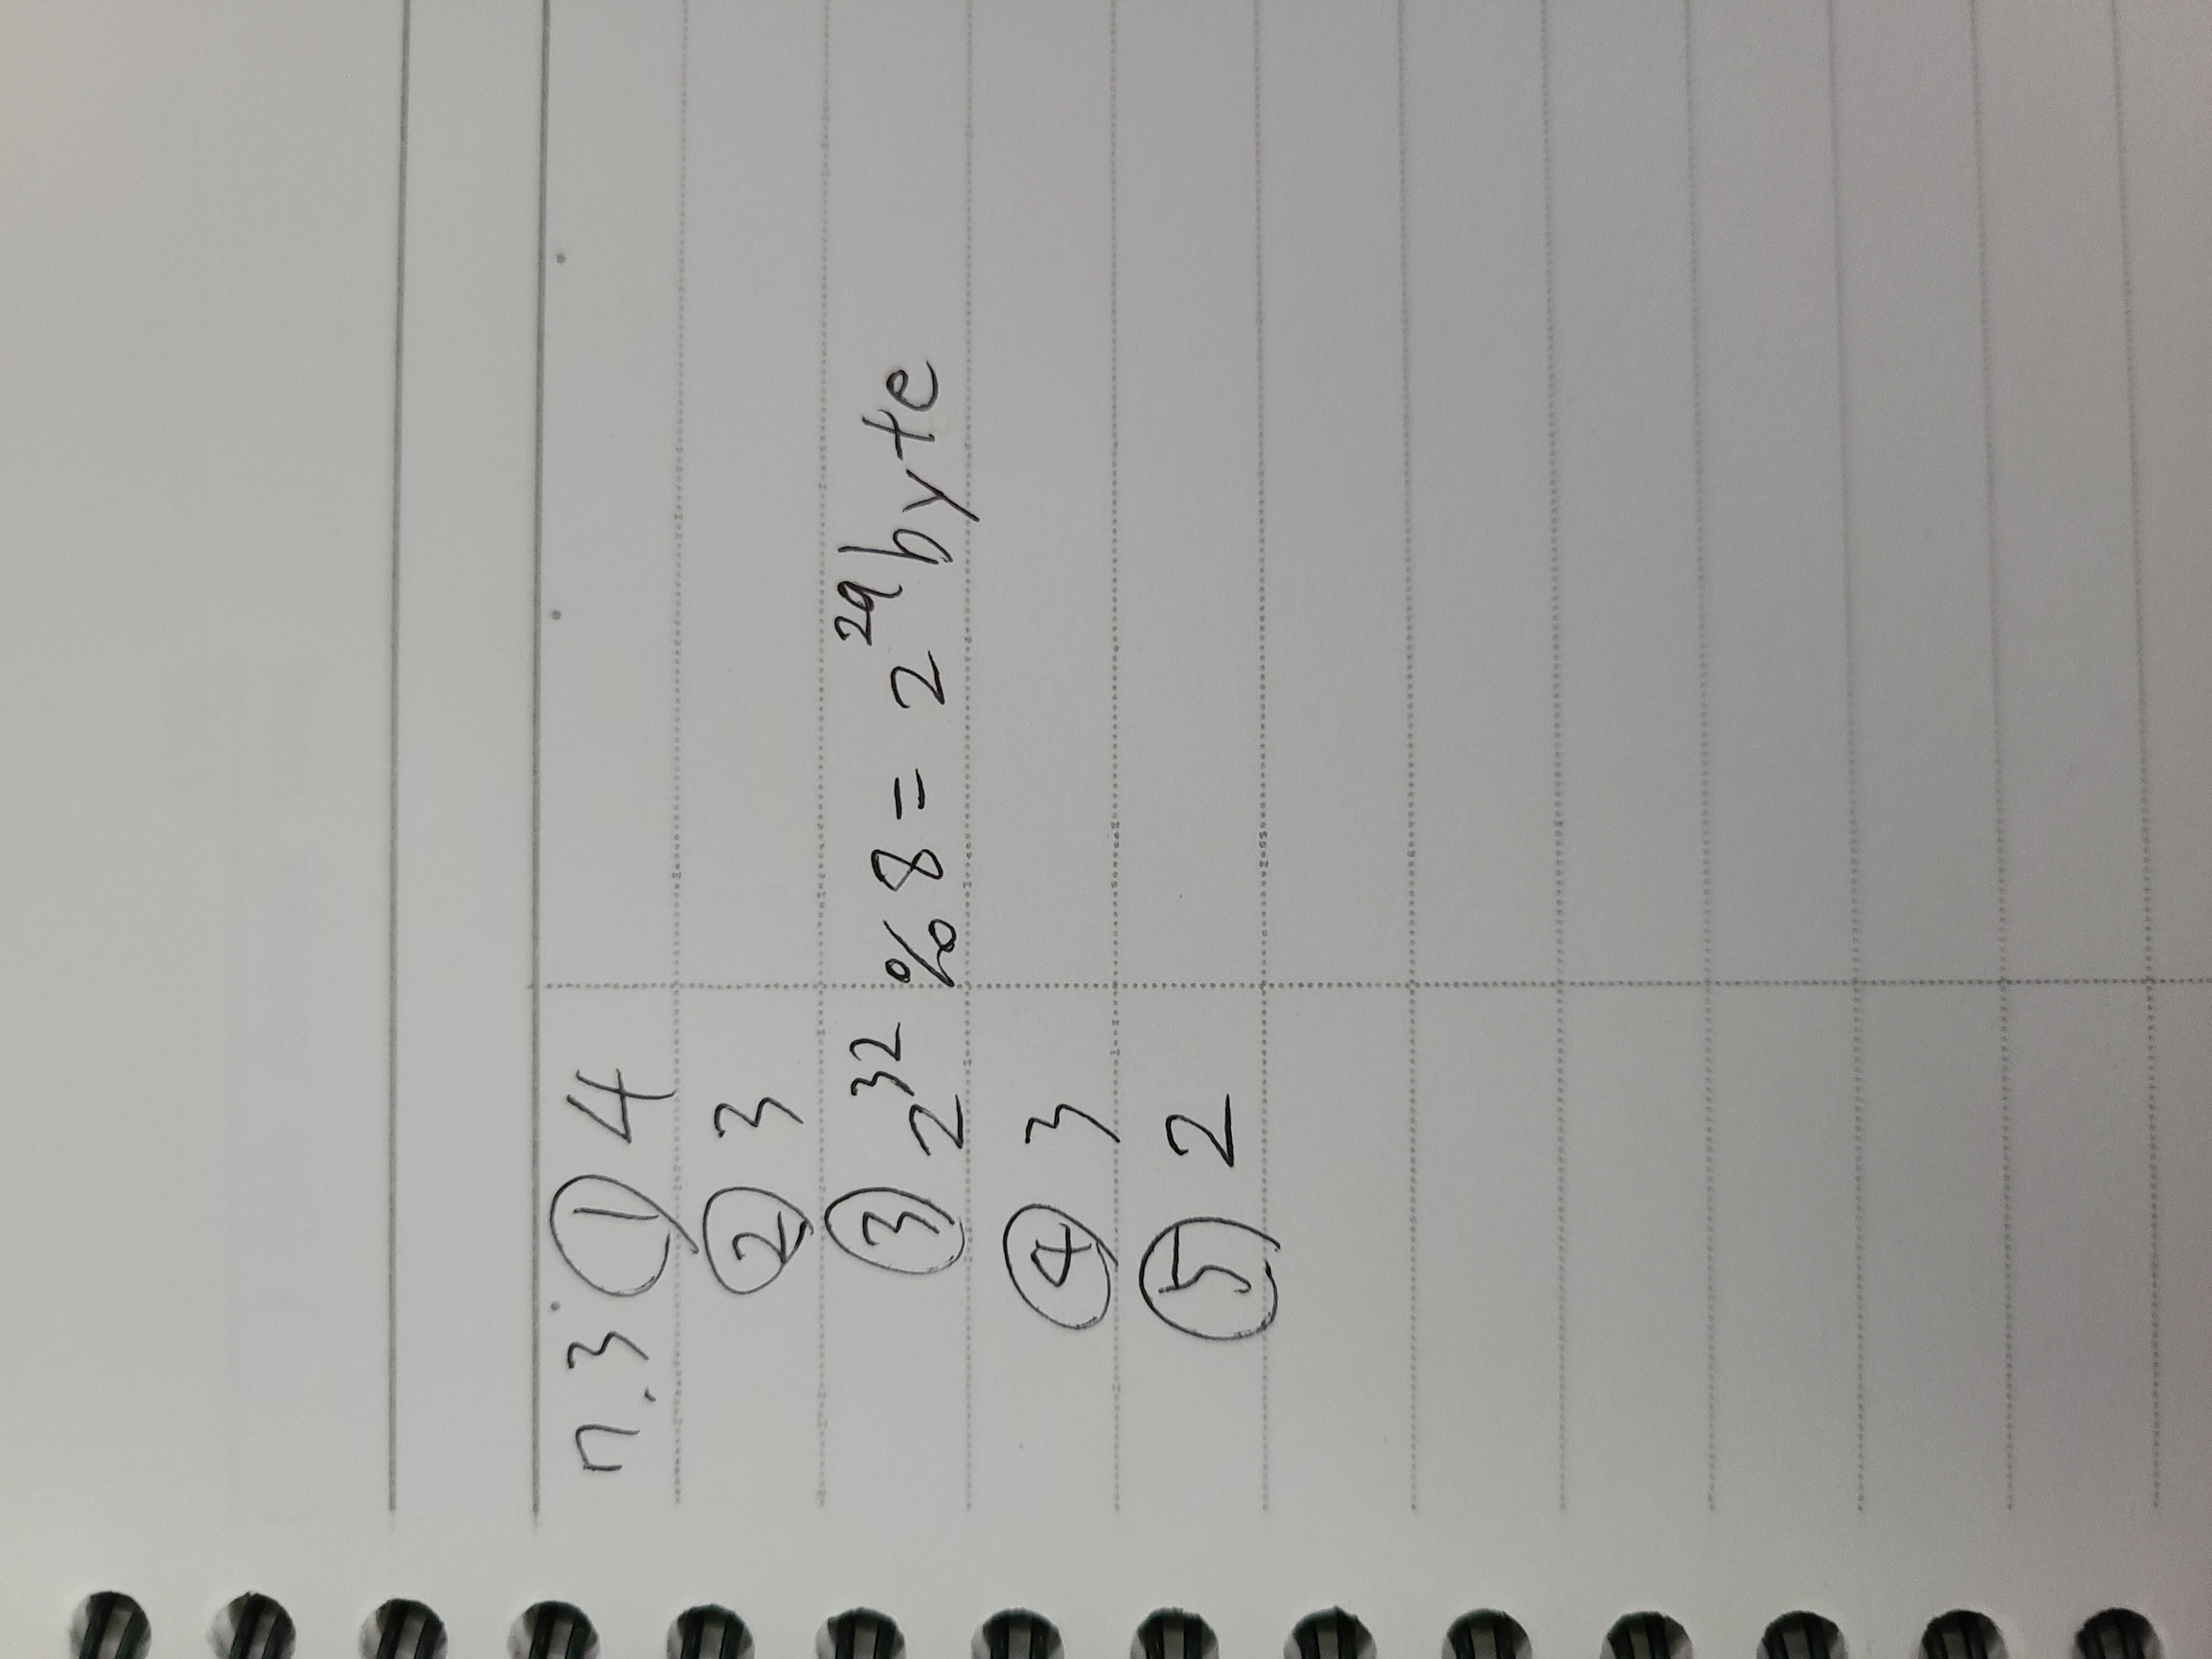 7.3 ① 4
② 3
③ 2³² % 8 = 2²⁹ byte
④ 3
⑤ 2